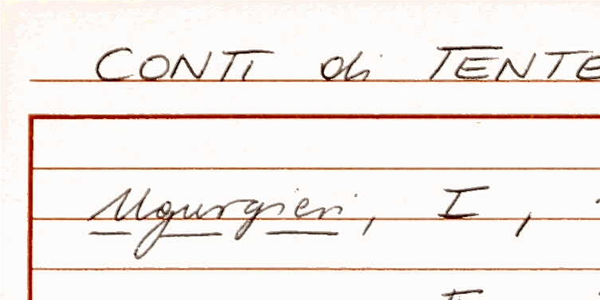 CONTI di TENTE
Ugurgieri, I,